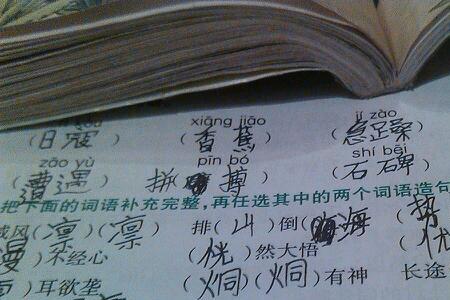 xiāng jiāo jí zào
(日寇) (香蕉) (急躁)
zāo yù pīn bó shí bēi
(遭遇) 拼搏 (石碑)
把下面的词语补充完整,再任选其中的两个词语造句
威风(凛)(凛) 排(山)倒(海) (
漫)不经心 (恍)然大悟 (
)耳欲聋 (炯)(炯)有神 长途